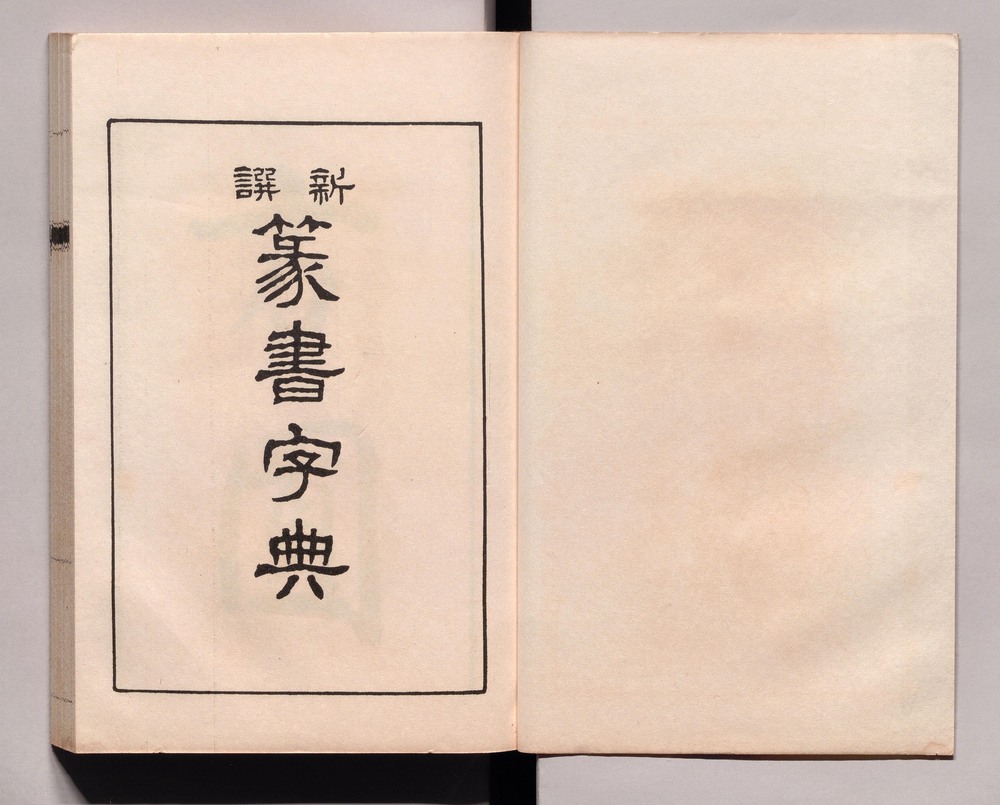 新譔
篆書字典